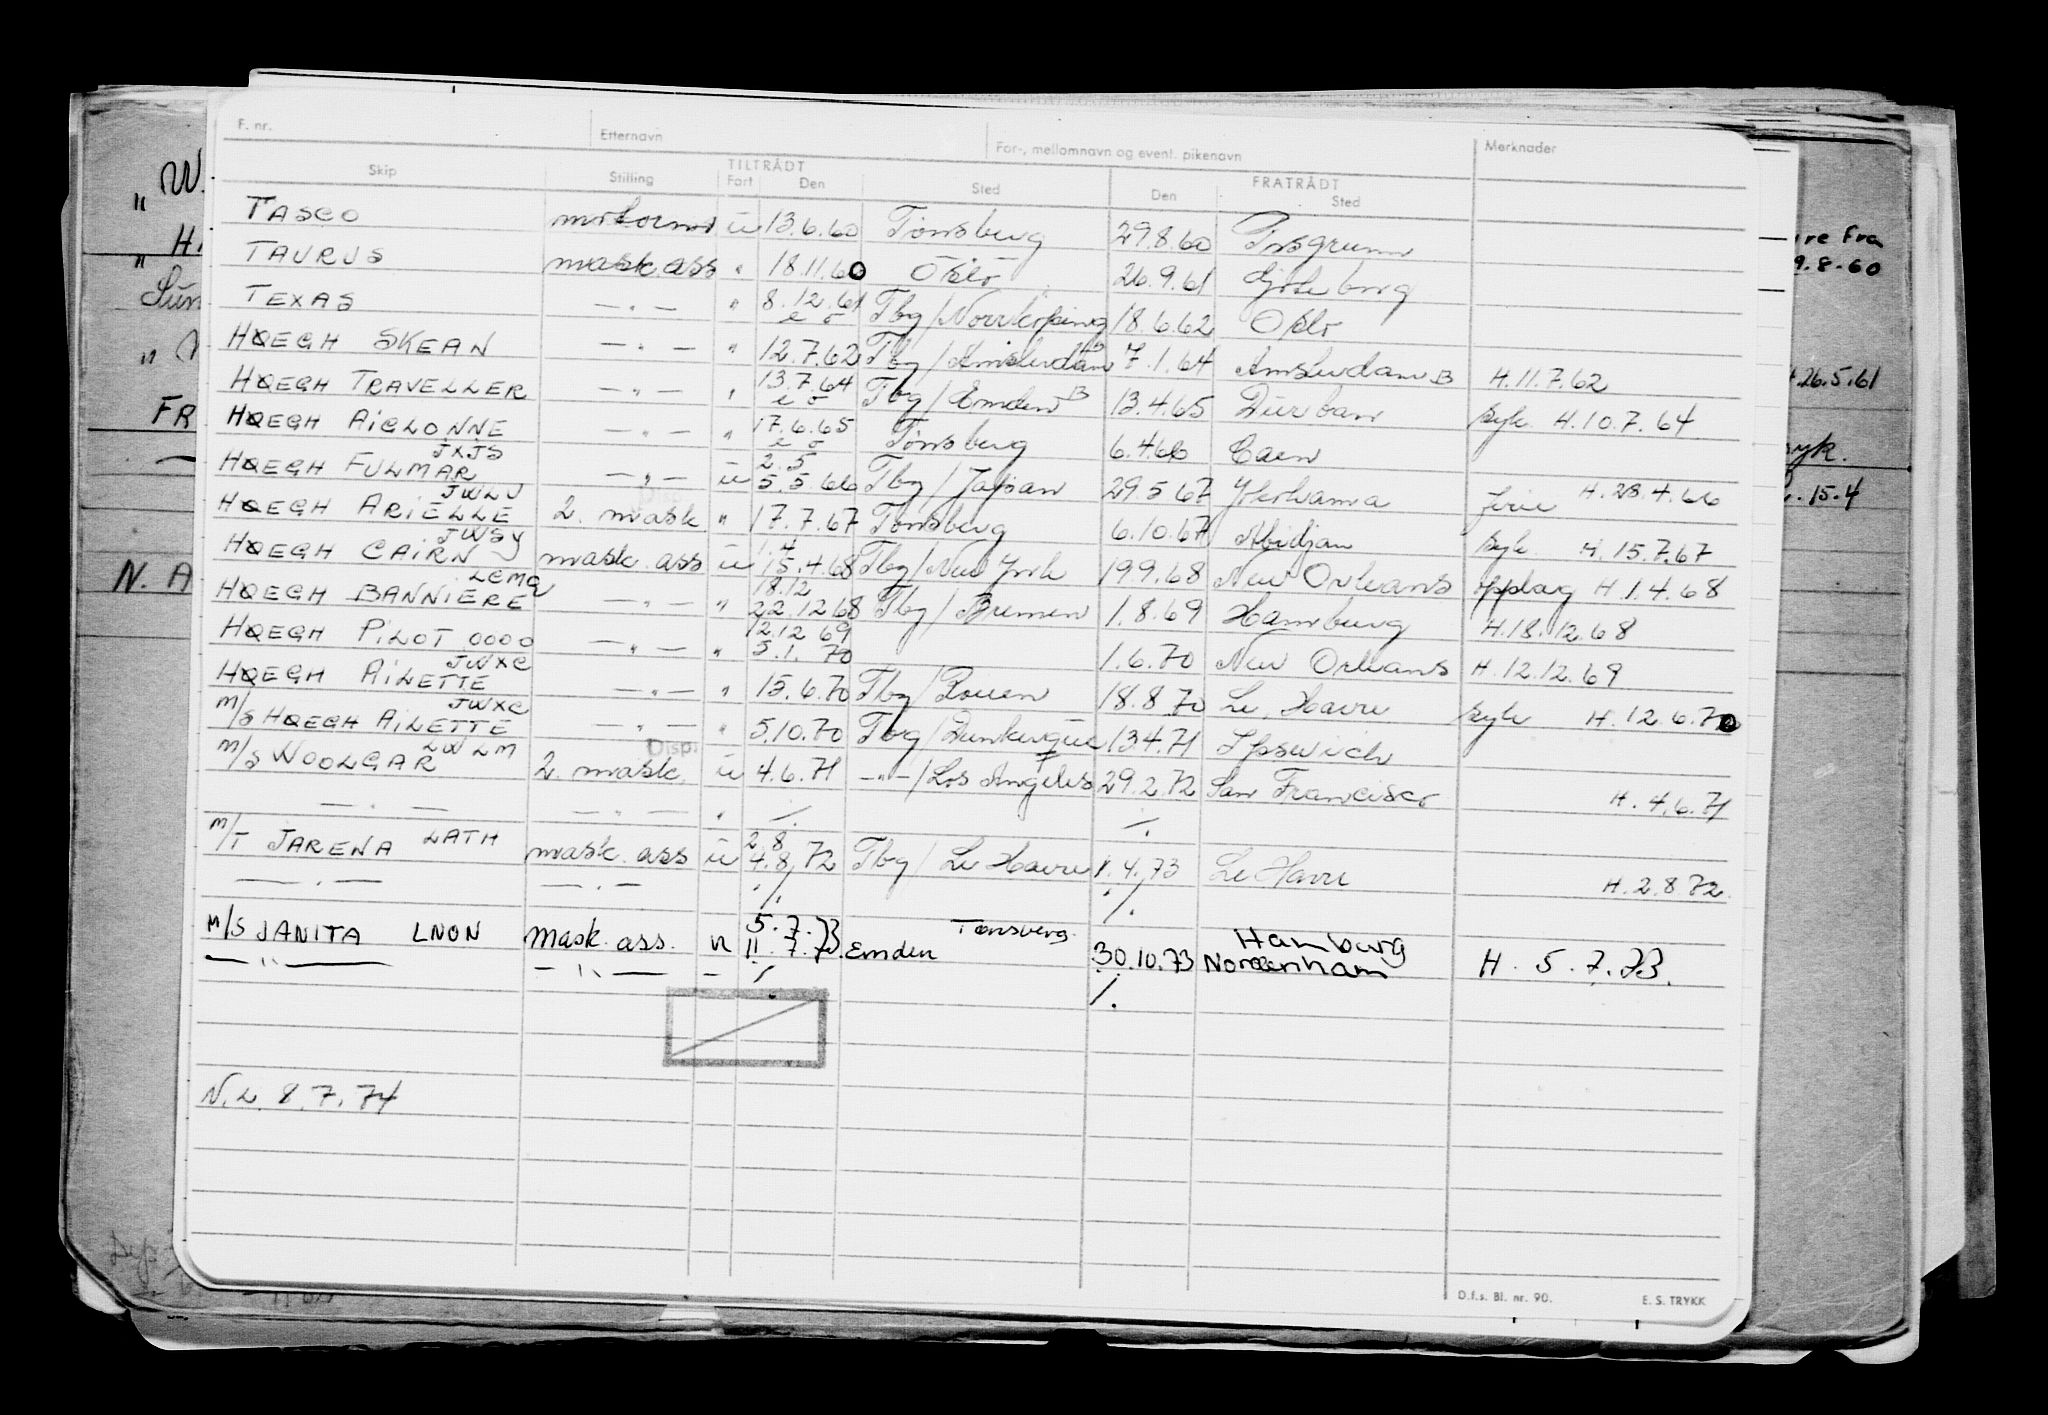 F. nr. Etternavn For-, mellomnavn og event. pikenavn Merknader
TILTRÅDT FRATRÅDT
Skip Stilling Fart Den Sted Den Sted
TASCO u 13.6.60 Tønsberg 29.8.60
TAURUS mask ass " 18.11.60 Oslo 26.9.61 Gøteborg
TEXAS — " — " 8.12.61 Tbg/Norrköping 18.6.62 Oslo
e o
HØEGH SKEAN — " — " 12.7.62 Tbg/Amsterdam B 7.1.64 Amsterdam B H.11.7.62
HØEGH TRAVELLER — " — " 13.7.64 Tbg/Emden B 13.4.65 Durban syk H.10.7.64
e o
HØEGH AIGLONNE — " — " 17.6.65 Tønsberg 6.4.66 Caen
e o
JXJS 2.5
HØEGH FULMAR — " — u 5.5.66 Tbg/Japan 29.5.67 Yokohama ferie H.28.4.66
JWLJ Disp.
HØEGH ARIELLE 2. mask " 17.7.67 Tønsberg 6.10.67 Abidjan syk H.15.7.67
JWSY 1.4
HØEGH CAIRN mask. ass u 15.4.68 Tbg/New York 19.9.68 New Orleans opplag H.1.4.68
LEMQ 18.12
HØEGH BANNIERE — " — " 22.12.68 Tbg/Bremen 1.8.69 Hamburg H.18.12.68
12.12 69
HØEGH PILOT OOOO — " — " 5.1.70 1.6.70 New Orleans H.12.12.69
JWXC
HØEGH AILETTE — " — " 15.6.70 Tbg/Rouen 18.8.70 Le Havre syk H.12.6.70
JWXC
M/S HØEGH AILETTE — " — " 5.10.70 Tbg/Dunkerque 13.4.71 Ipswich
LWLM Disp.
M/S WOOLGAR 2. mask. u 4.6.71 —"—/Los Angeles 29.2.72 San Francisco H.4.6.71
— " — — " — " /. /.
LATH 2.8
M/T JARENA mask. ass u 4.8.72 Tbg/Le Havre 1.4.73 Le Havre H.2.8.72.
— " — — " — /. /.
5.7.73 Tønsberg Hamburg
M/S JANITA LNON Mask. ass. u 11.7.73. Emden 30.10.73 Nordenham H. 5.7.73.
— " — — " — – /. /.
N.L. 8.7.74
D.f.s. Bl. nr. 90. E. S. TRYKK
" W.
" H.
Sun
"
FR
N. A
are fra
9.8-60
26.5.61
syk.
15.4